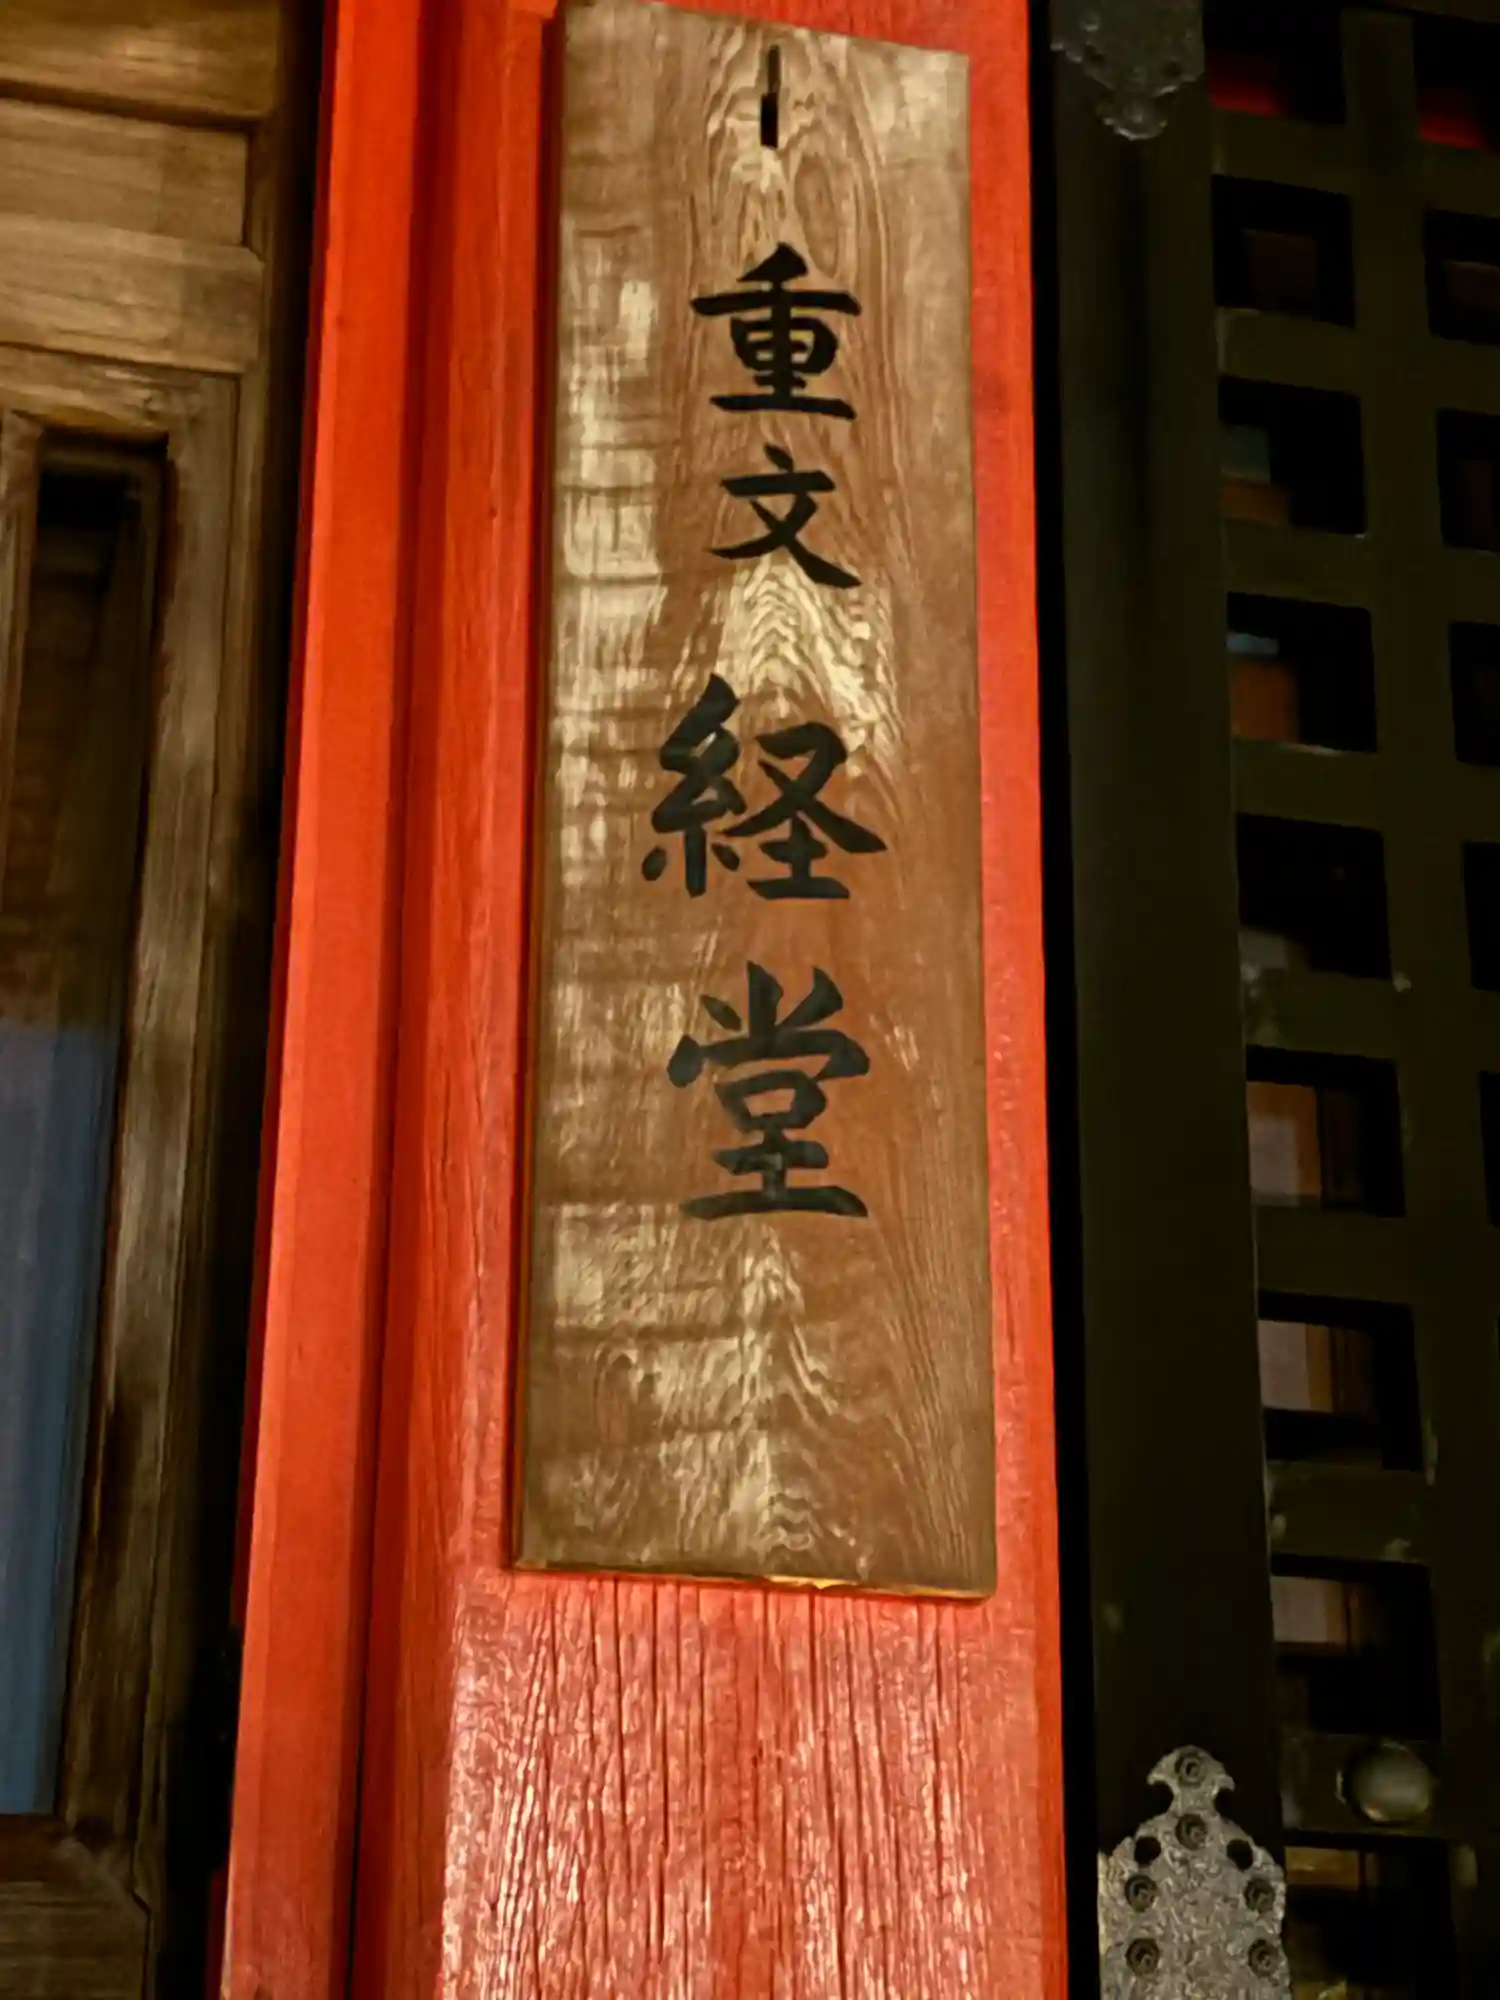 重文
経堂